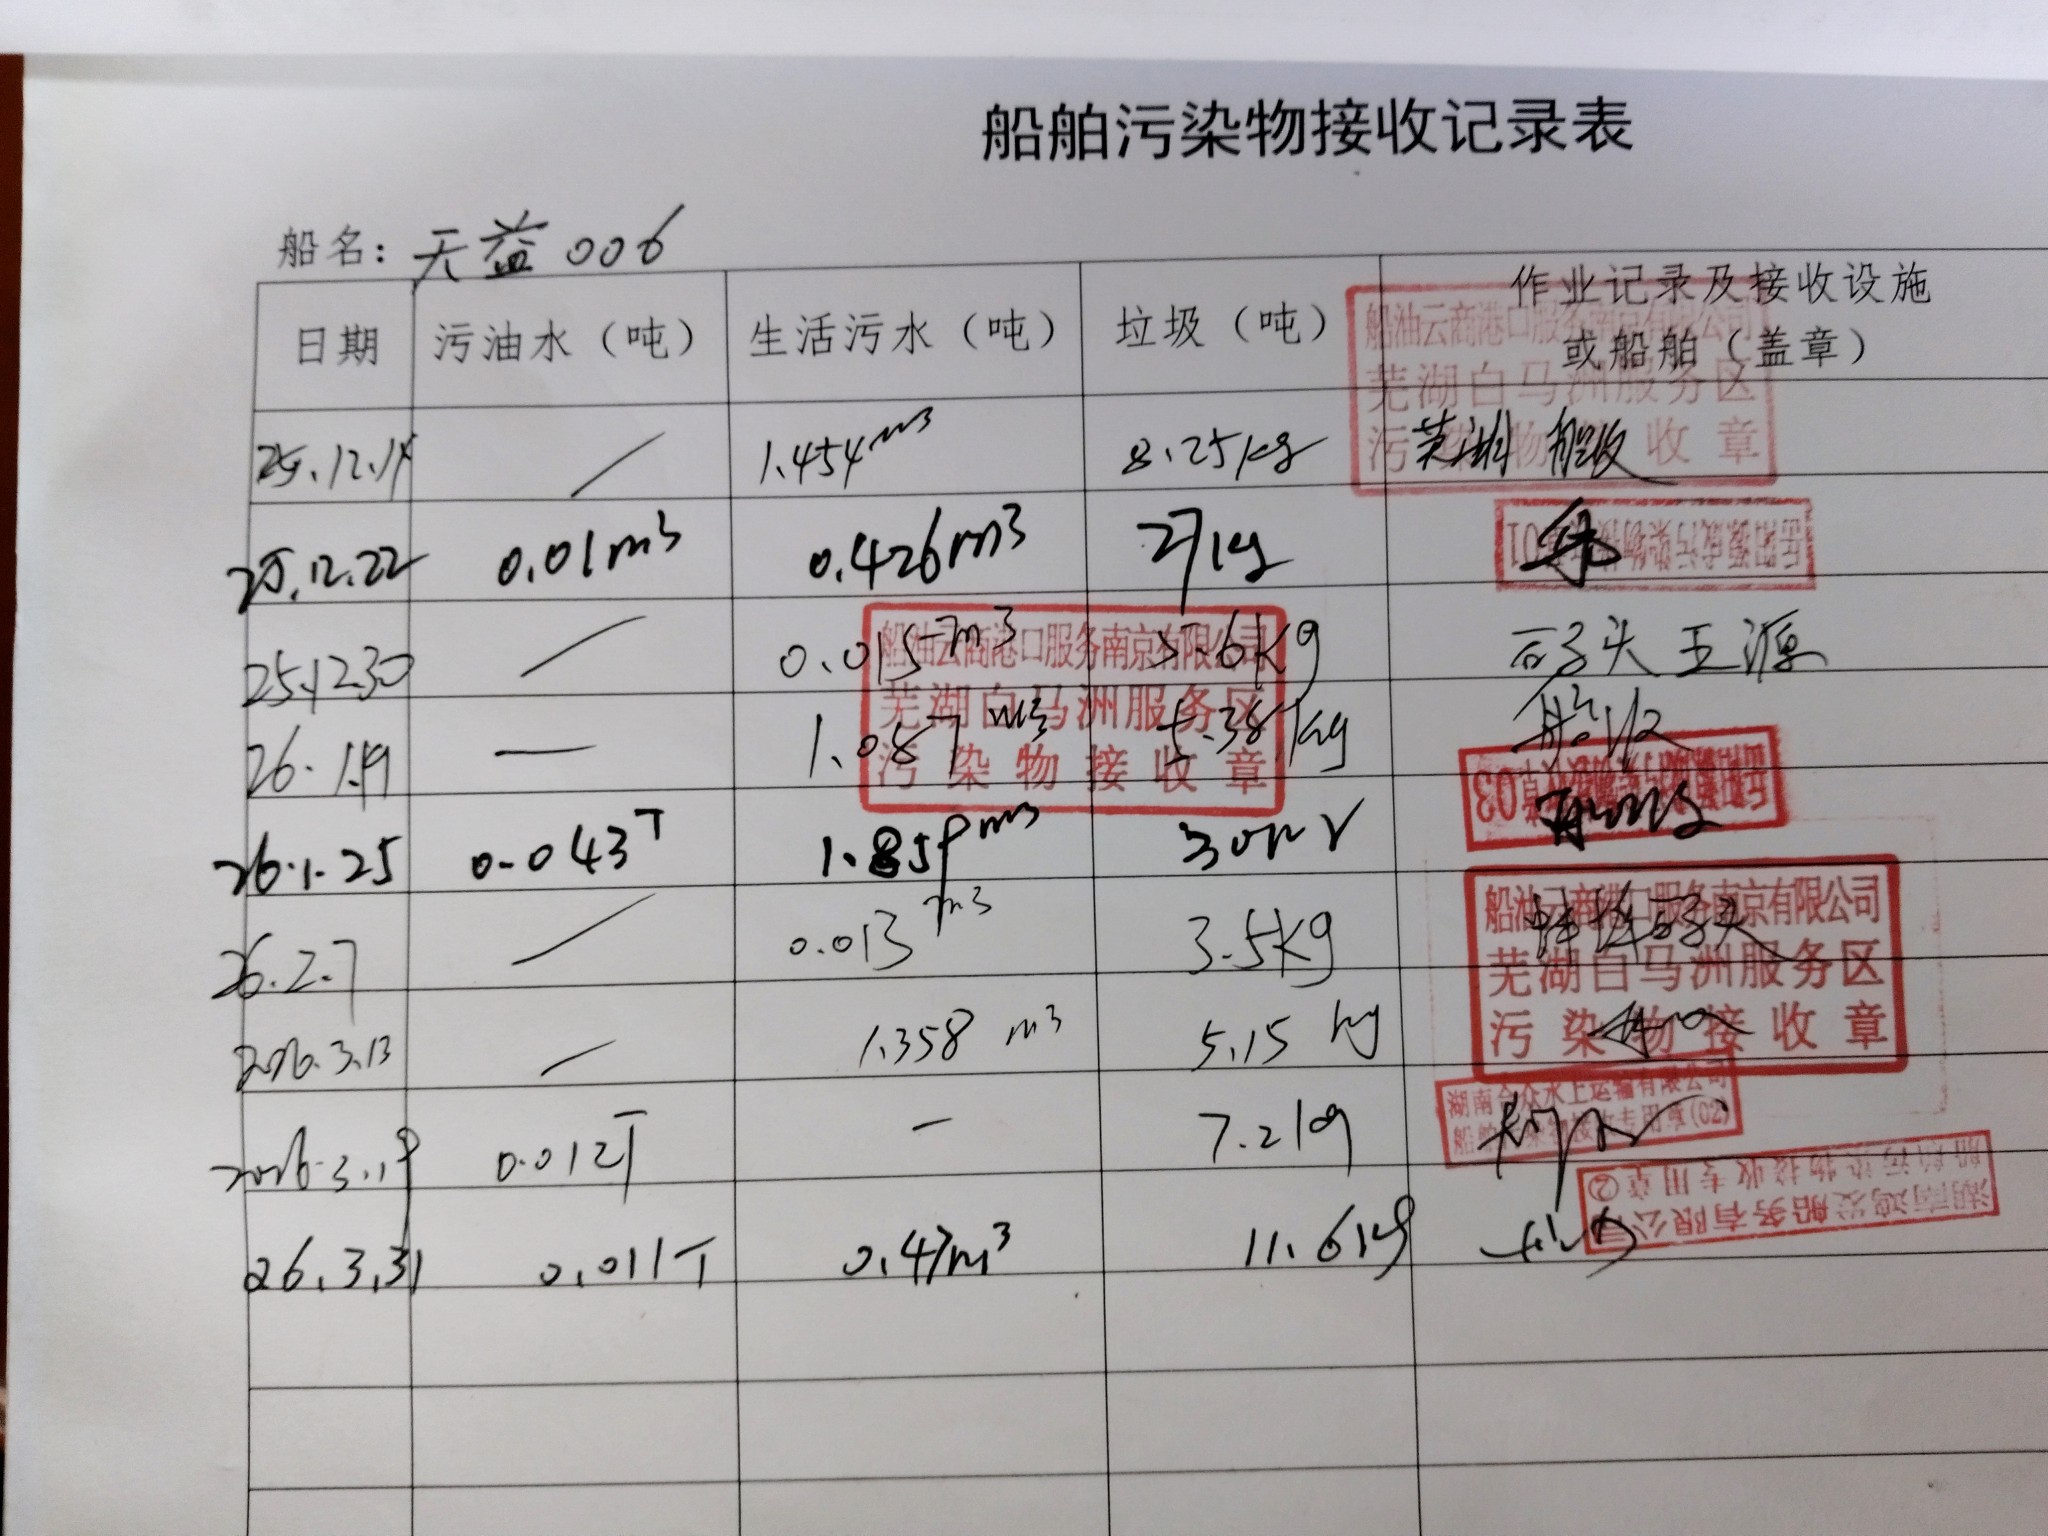 船舶污染物接收记录表
船名: 天益006
日期 污油水（吨） 生活污水（吨） 垃圾（吨） 作业记录及接收设施
或船舶（盖章）
船油云商港口服务南京有限公司
芜湖白马洲服务区
污染物接收章
25.12.14 / 1.454m³ 8.25kg
25.12.22 0.01m³ 0.426m³ 27kg
25.12.30 / 0.015m³ 5.6kg 码头王源
船油云商港口服务南京有限公司
芜湖白马洲服务区
污染物接收章
26.1.19 — 1.087m³ 5.38kg 船收
03
26.1.25 0.043T 1.859m³
26.2.7 / 0.013m³ 3.5kg
船油云商港口服务南京有限公司
芜湖白马洲服务区
污染物接收章
2026.3.13 / 1.358m³ 5.15kg
2026.3.19 0.012T - 7.2kg
湖南合众水上运输有限公司
船舶污染物接收专用章(02)
湖南鸿发船务有限公司
船舶污染物接收专用章②
26.3.31 0.011T 0.47m³ 11.6kg